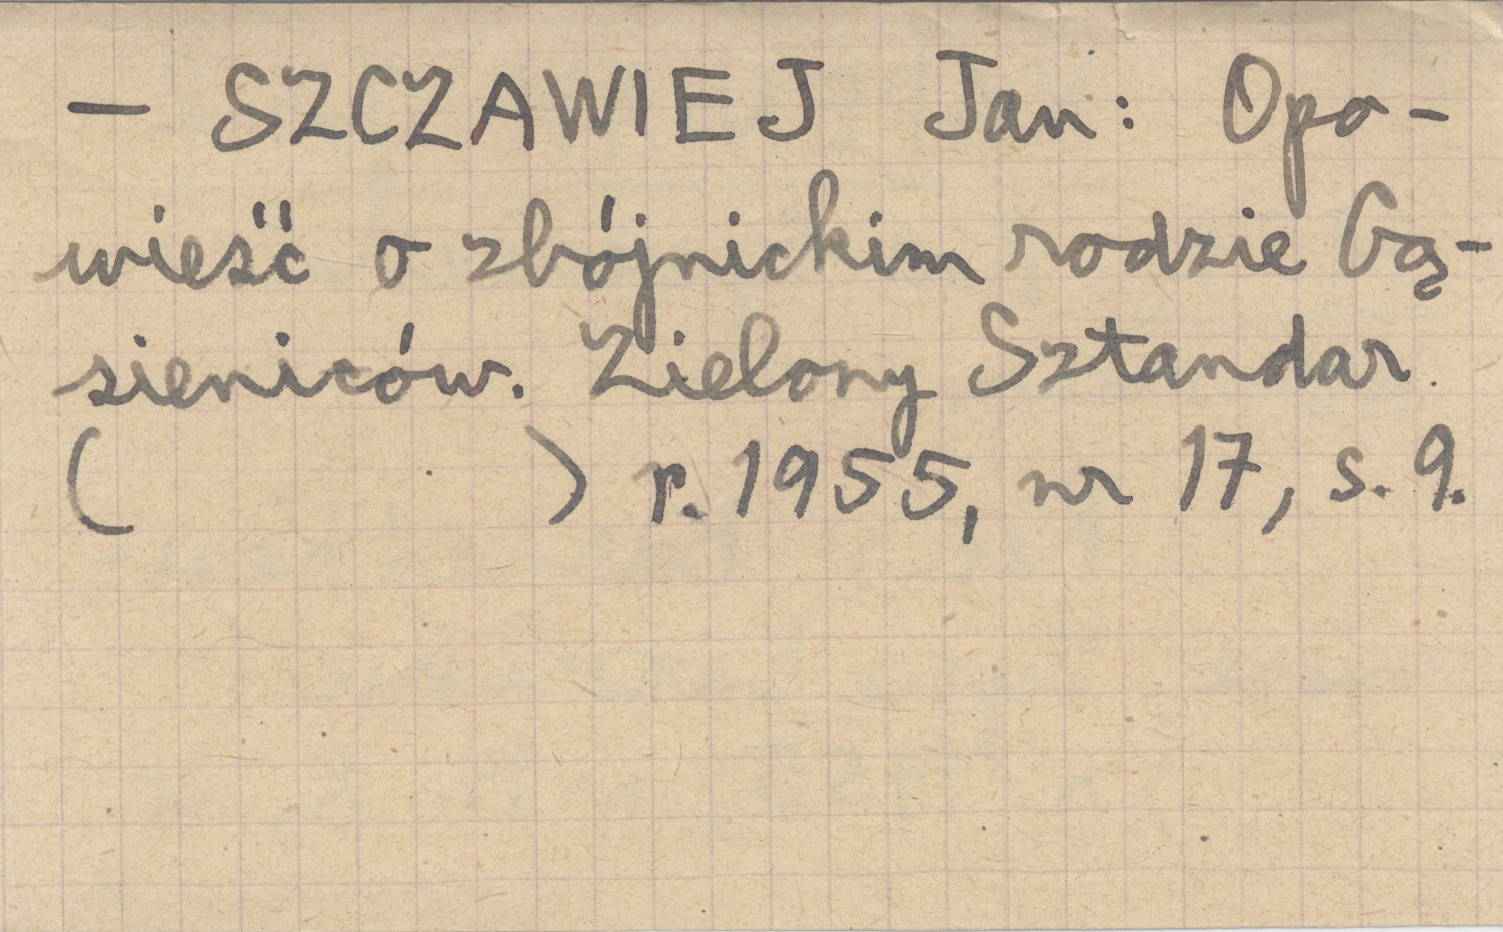 — SZCZAWIEJ Jan: Opo-
wieść o zbójnickim rodzie Gą-
sieniców. Zielony Sztandar
( ) r. 1955, nr 17, s. 9.